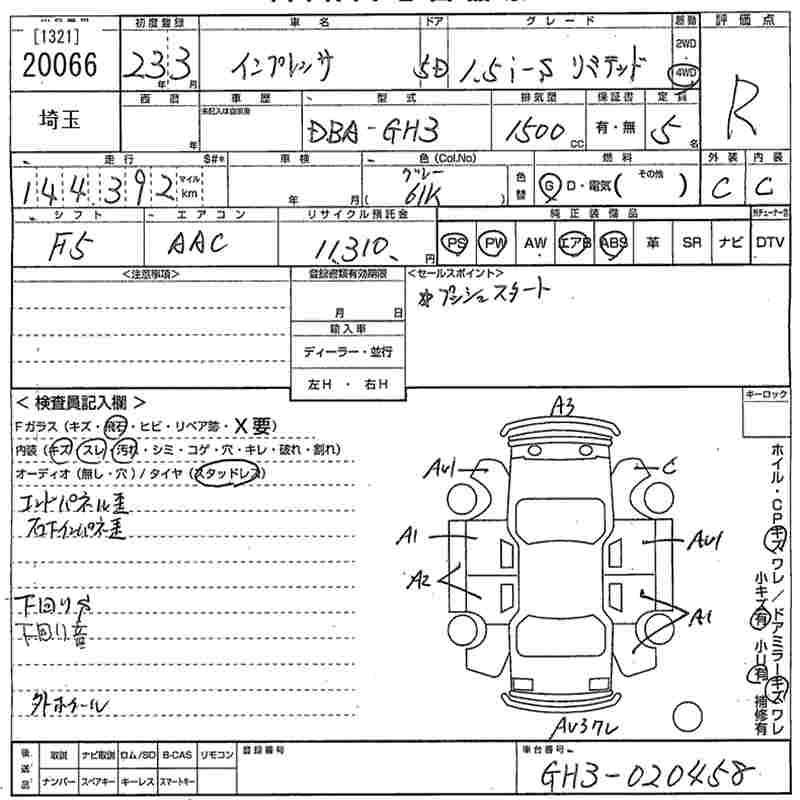 [1321]
20066
初度登録
車名
ドア
グレード
駆動
評価点
23年 3月
インプレッサ
5D
1.5i-S リミテッド
2WD
4WD
R
埼玉
西暦
車歴
型式
排気量
保証書
定員
年
未記入は自家用
DBA-GH3
1500cc
有・無
5名
走行
S#*
車検
色(Col.No)
燃料
外装
内装
144,392
マイル
km
年 月
グレー
( 61K )
色替
G D・電気( その他 )
C
C
シフト
エアコン
リサイクル預託金
純正装備品
F5
AAC
11,310.円
PS PW AW エアB ABS 革 SR ナビ DTV
<注意事項>
登録書類有効期限
<セールスポイント>
月 日
プッシュスタート
輸入車
ディーラー・並行
左H・右H
<検査員記入欄>
キーロック
Fガラス(キズ・飛石・ヒビ・リペア跡・X要)
内装(キズ・スレ・汚れ・シミ・コゲ・穴・キレ・破れ・割れ)
オーディオ(無し・穴)/タイヤ(スタッドレス)
エンドパネル歪
下回りサ
下回り音
外ホイール
A3
AU1
C
A1
AU1
A2
A1
AU3ワレ
ホイル・CPキズワレ/ドアミラーキズワレ
小キズ有 小U有 補修有
後送品
取説 ナビ取説 ロム/SD B-CAS リモコン
ナンバー スペアキー キーレス スマートキー
登録番号
車台番号
GH3-020458